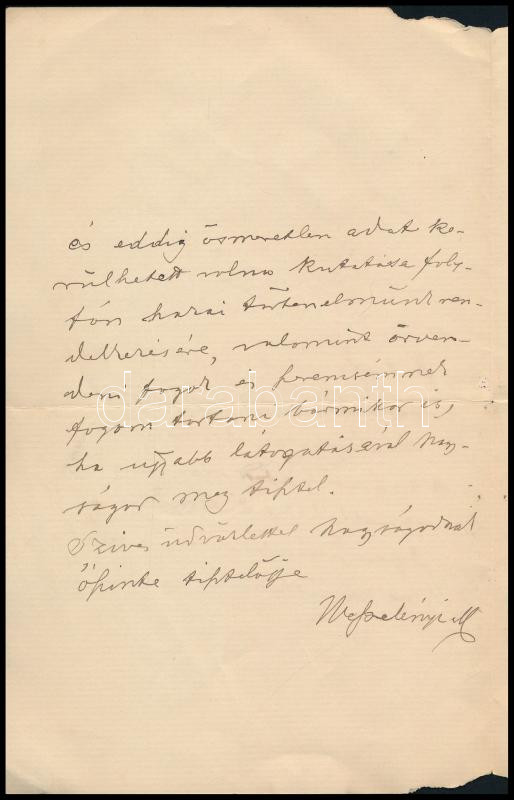 és eddig ösmeretlen adat ke-
rülhetett volna kutatása foly-
tán hazai történelmünk ren-
delkezésére, valamint örven-
deni fogok és szerencsémnek
darabanth
fogom tartani bármikor is,
ha ujjabb látogatásával nagy-
ságod meg tisztel.
Szives üdvözlettel nagyságodnak
őszinte tisztelője
Wesselényi M